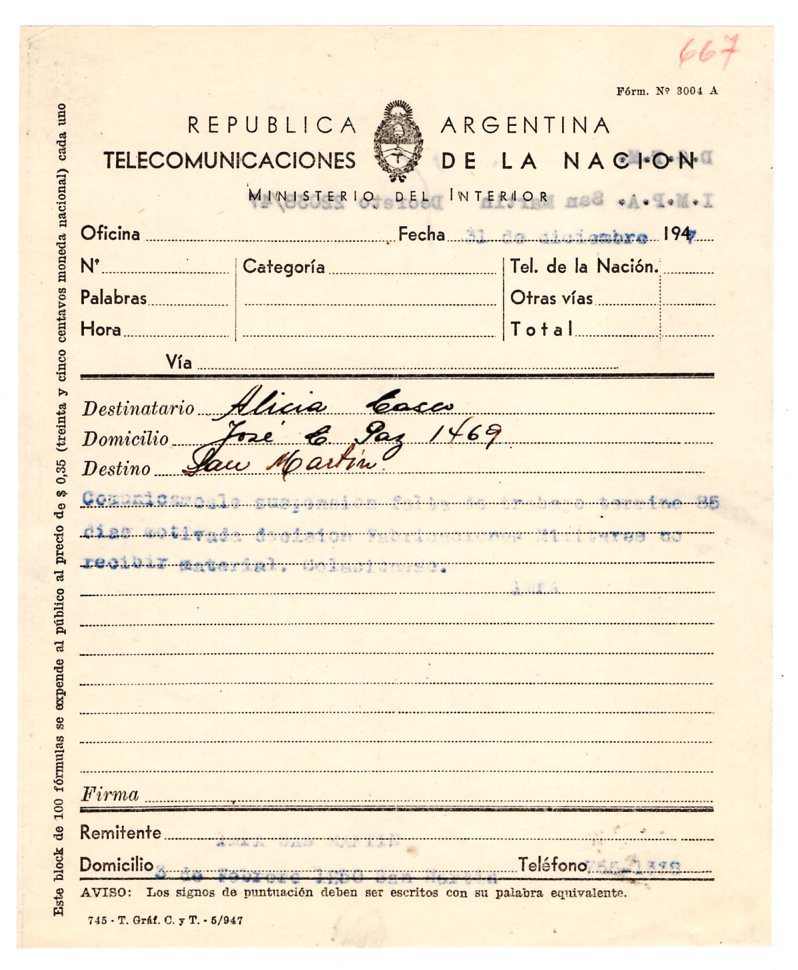 667
Fórm. Nº 3004 A
REPUBLICA ARGENTINA
TELECOMUNICACIONES DE LA NACION
MINISTERIO DEL INTERIOR
I.M.P.A. San Martín Decreto 22038/47
Oficina Fecha 31 de diciembre 1947
Nº Categoría Tel. de la Nación.
Palabras Otras vías
Hora Total
Vía
Destinatario Alicia Casco
Domicilio José C. Paz 1469
Destino San Martín.
Comunicamosle suspension falta de trabajo termino 25
dias motivada decision Fabricaciones Militares no
recibir material. Colacionese.
IMPA
Firma
Remitente IMPA SAN MARTIN
Domicilio 3 de Febrero San Martin Teléfono
AVISO: Los signos de puntuación deben ser escritos con su palabra equivalente.
745 - T. Gráf. C. y T. - 5/947
Este block de 100 fórmulas se expende al público al precio de $ 0,35 (treinta y cinco centavos moneda nacional) cada uno